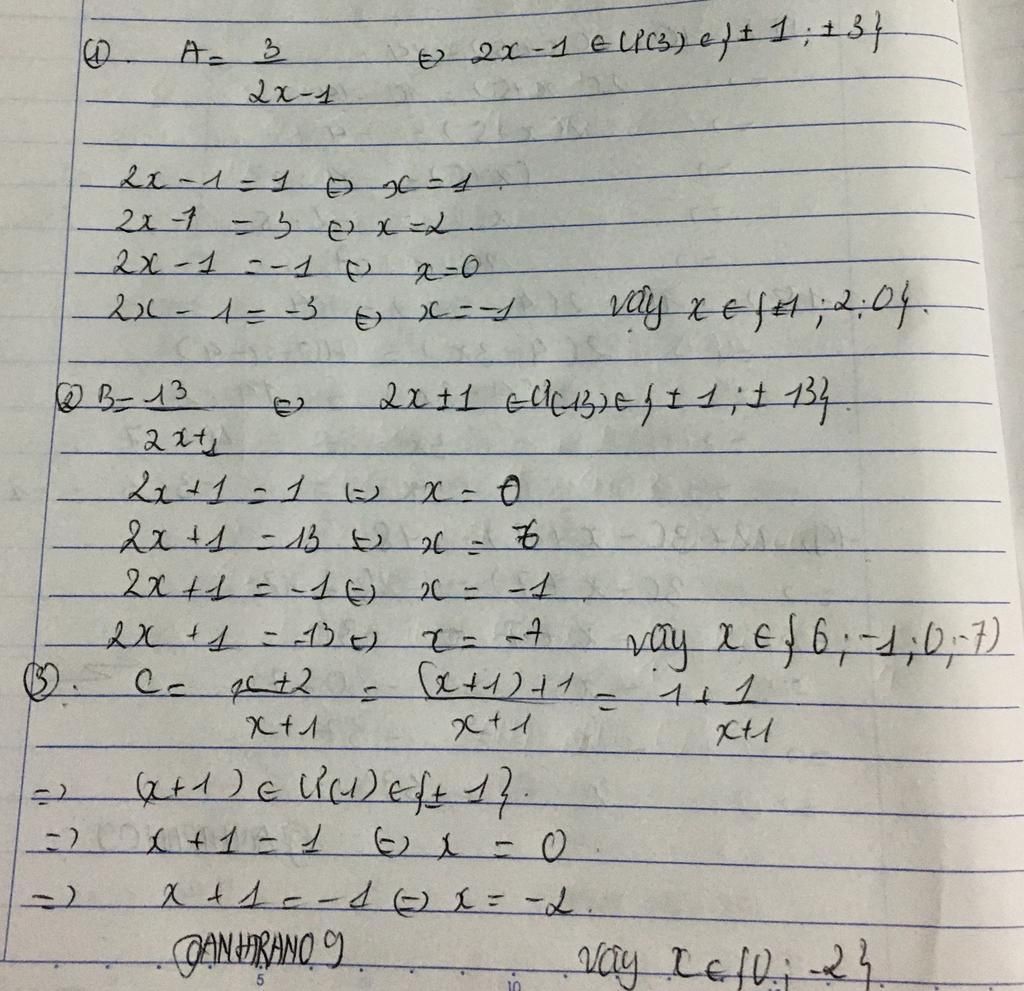 ① . A = 3/(2x-1) ⇔ 2x-1 ∈ Ư(3) ∈ {±1; ±3}
2x - 1 = 1 ⇔ x = 1.
2x - 1 = 3 ⇔ x = 2.
2x - 1 = -1 ⇔ x = 0
2x - 1 = -3 ⇔ x = -1 vậy x ∈ {±1; 2; 0}.
② B = 13/(2x+1) ⇔ 2x+1 ∈ Ư(13) ∈ {±1; ±13}.
2x + 1 = 1 ⇔ x = 0
2x + 1 = 13 ⇔ x = 6
2x + 1 = -1 ⇔ x = -1
2x + 1 = -13 ⇔ x = -7 vậy x ∈ {6; -1; 0; -7}
③ . C = (x+2)/(x+1) = ((x+1)+1)/(x+1) = 1 + 1/(x+1)
=> (x+1) ∈ Ư(1) ∈ {±1}.
=> x + 1 = 1 ⇔ x = 0
=> x + 1 = -1 ⇔ x = -2.
vậy x ∈ {0; -2}
5 10